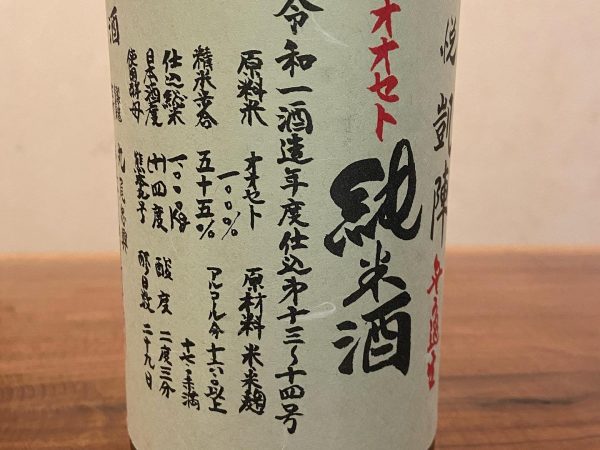 悦凱陣
オオセト
純米酒
令和一酒造年度仕込第十三〜十四号
原料米 オオセト 一〇〇% 原材料 米米麹
精米歩合 五十五% アルコール分 十六・〇以上
十七・〇未満
仕込総米
日本酒度 (+)四度 酸度 二度三分
使用酵母 醪日数 二十九日
酒